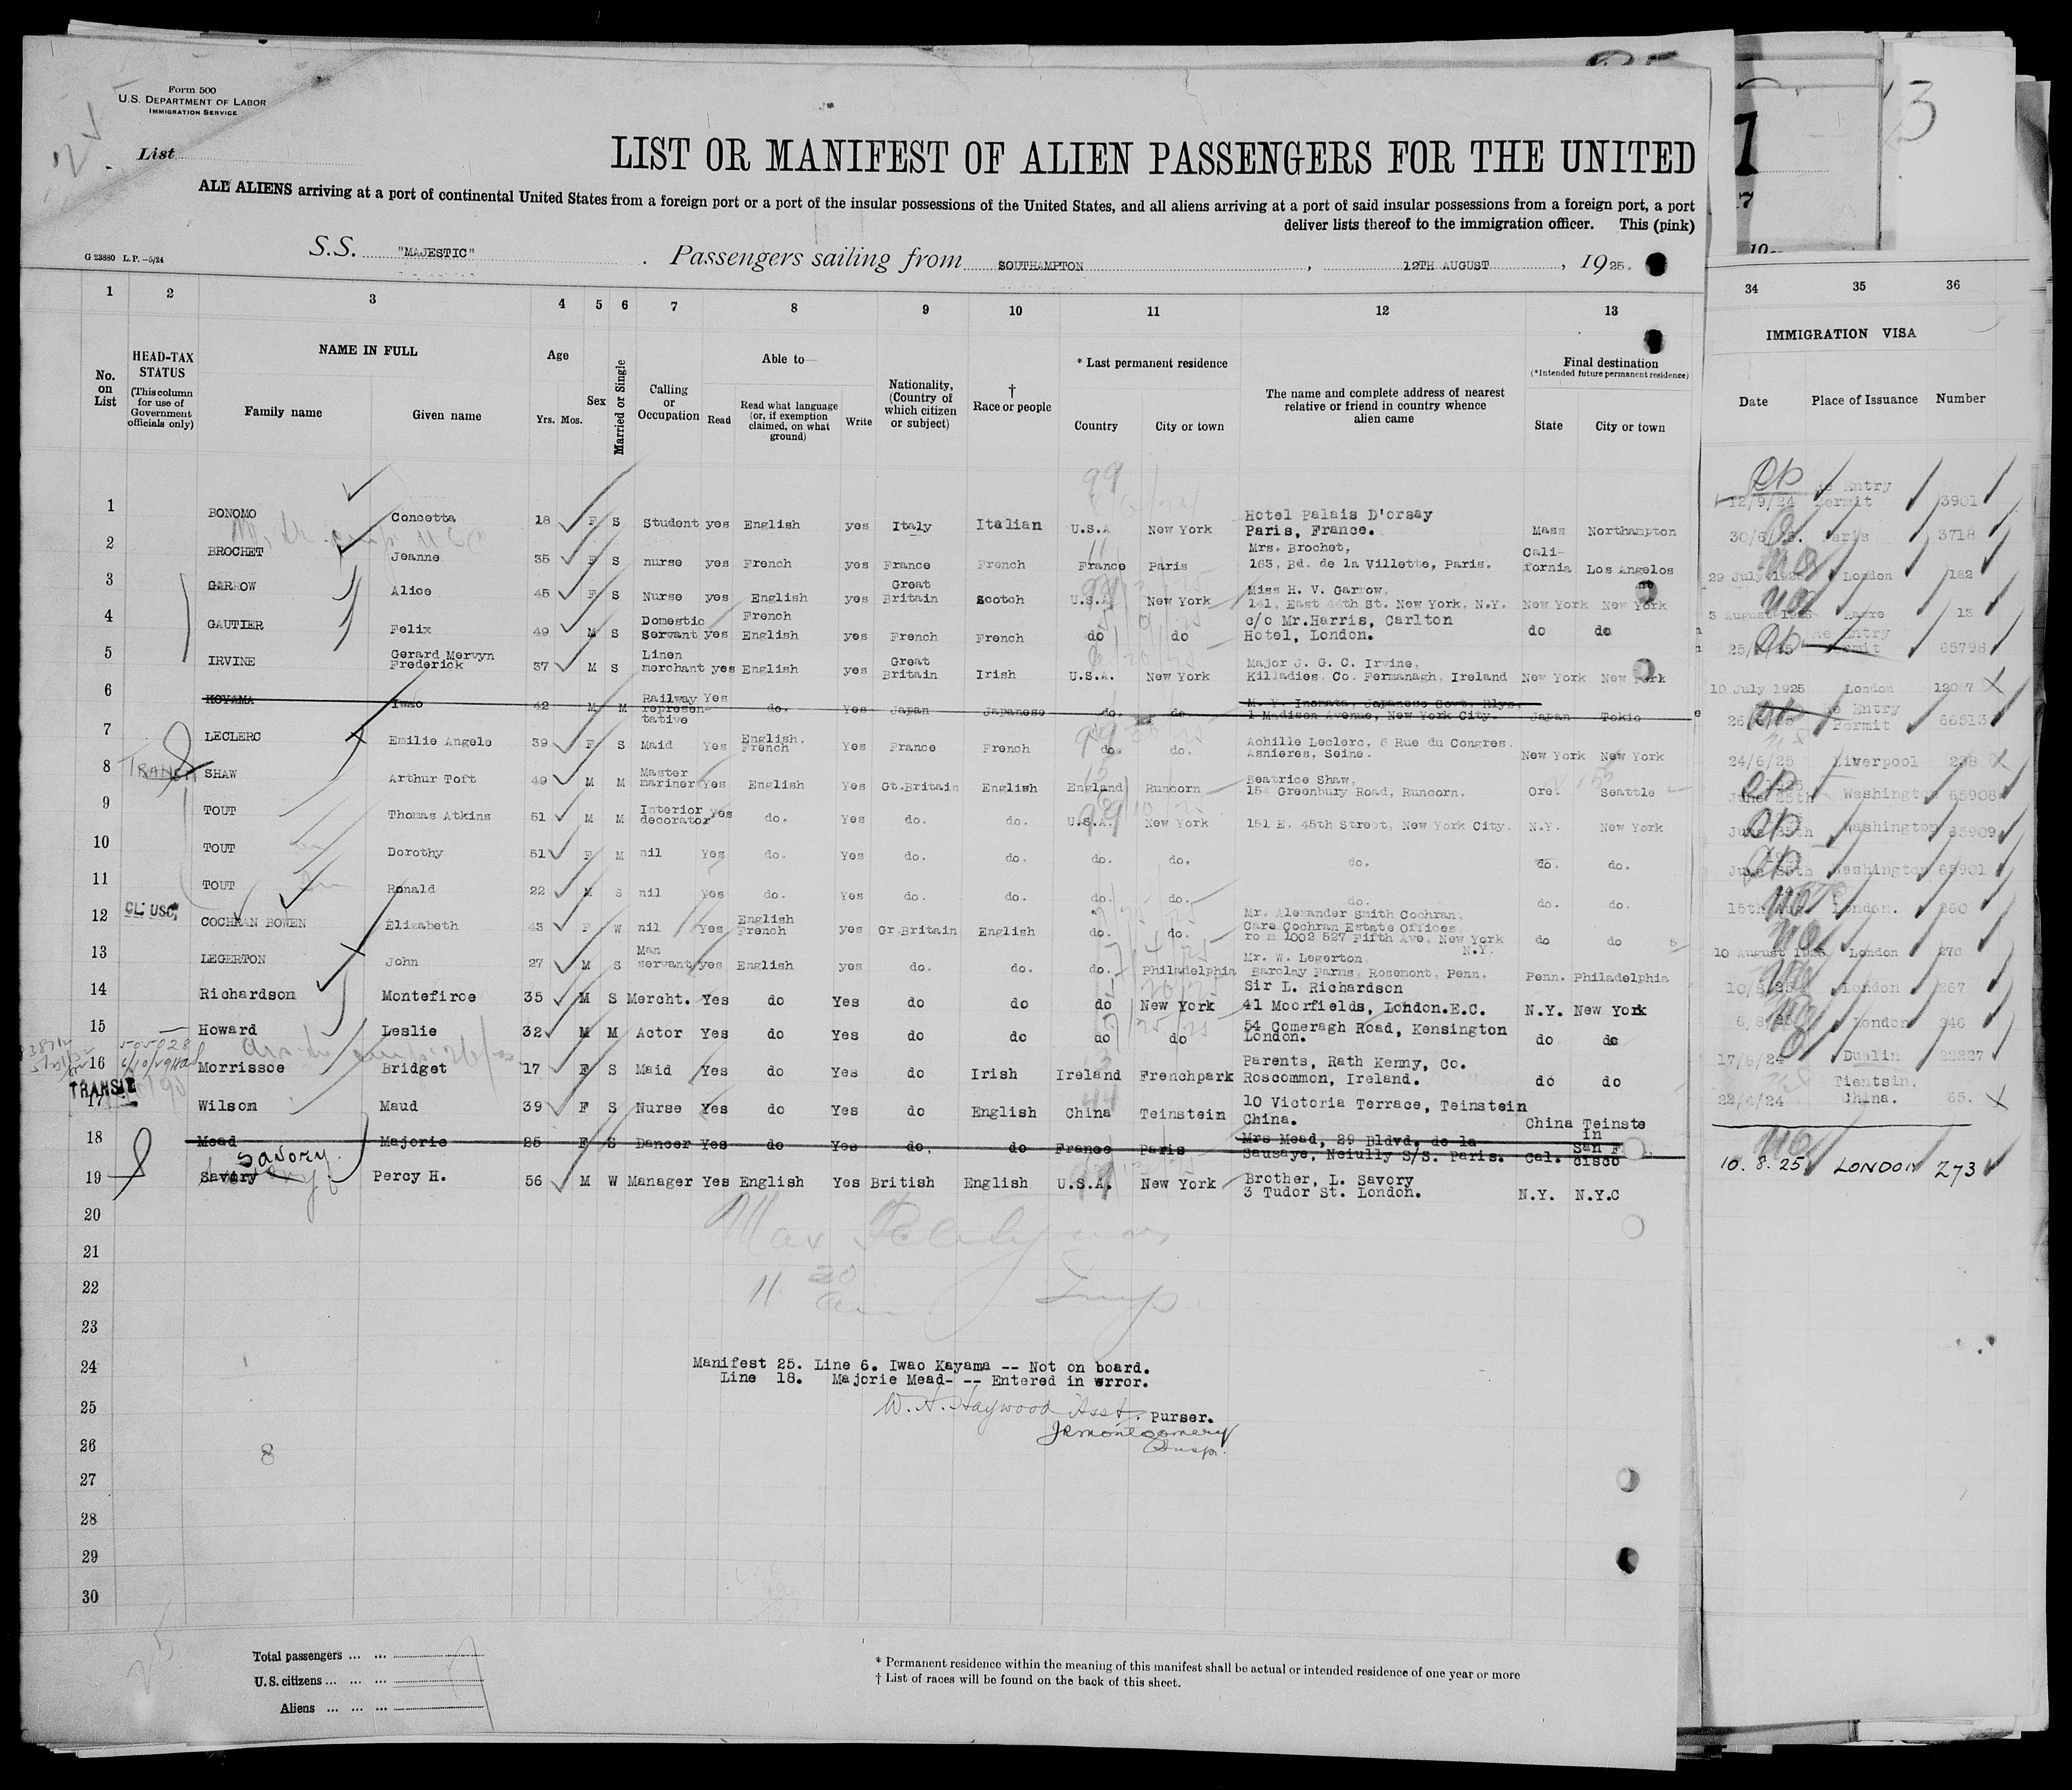 Form 500
U.S. DEPARTMENT OF LABOR
IMMIGRATION SERVICE
List
LIST OR MANIFEST OF ALIEN PASSENGERS FOR THE UNITED
ALL ALIENS arriving at a port of continental United States from a foreign port or a port of the insular possessions of the United States, and all aliens arriving at a port of said insular possessions from a foreign port, a port
deliver lists thereof to the immigration officer. This (pink)
G 23880 L. P. —5/24
S.S. "MAJESTIC" . Passengers sailing from SOUTHAMPTON , 12TH AUGUST , 1925.
1 2 3 4 5 6 7 8 9 10 11 12 13 34 35 36
No. on List
HEAD-TAX STATUS
(This column for use of Government officials only)
NAME IN FULL
Family name Given name
Age
Yrs. Mos.
Sex
Married or Single
Calling or Occupation
Able to—
Read
Read what language (or, if exemption claimed, on what ground)
Write
Nationality, (Country of which citizen or subject)
† Race or people
* Last permanent residence
Country City or town
The name and complete address of nearest relative or friend in country whence alien came
Final destination
(*Intended future permanent residence)
State City or town
IMMIGRATION VISA
Date Place of Issuance Number
1 BONOMO Concetta 18 F S Student yes English yes Italy Italian U.S.A New York Hotel Palais D'orsay Paris, France. Mass Northampton 12/9/24 Re Entry Permit 3901
2 BROCHET Jeanne 35 F S nurse yes French yes France French France Paris Mrs. Brochet, 163, Bd. de la Villette, Paris. Cali-fornia Los Angelos 30/6/25. Paris 3718
3 GARROW Alice 45 F S Nurse yes English yes Great Britain Scotch U.S.A New York Miss H. V. Garrow, 141, East 44th St. New York, N.Y. New York New York 29 July 1925 London 182
4 GAUTIER Felix 49 M S Domestic Servant yes French English yes French French do do c/o Mr.Harris, Carlton Hotel, London. do do 3 August 1925 Havre 13
5 IRVINE Gerard Mervyn Frederick 37 M S Linen merchant yes English yes Great Britain Irish U.S.A. New York Major J. G. C. Irvine, Killadies, Co. Fermanagh, Ireland New York New York Re Entry Permit 65798
6 KOYAMA Iwao 42 M M Railway represen-tative Yes do. Yes Japan Japanese do. do M. Y. Inomata, Japanese Govt. Rlys. 1 Madison Avenue, New York City. Japan Tokio 10 July 1925 London
7 LECLERC Emilie Angele 39 F S Maid Yes English. French Yes France French do. do. Achille Leclerc, 6 Rue du Congres. Asnieres, Seine. New York New York Re Entry Permit 66513
TRANSIT
8 SHAW Arthur Toft 49 M M Master mariner Yes English Yes Gt.Britain English England Runcorn Beatrice Shaw, 154 Greenbury Road, Runcorn. Ore. Seattle 24/6/25 Liverpool
9 TOUT Thomas Atkins 51 M M Interior decorator yes do. Yes do. do. U.S.A. New York 151 E. 45th Street, New York City. N.Y. New York June 25th Washington 65908
10 TOUT Dorothy 51 F M nil Yes do. Yes do. do. do. do. do. do. do. June 25th Washington 65909
11 TOUT Ronald 22 M S nil Yes do. Yes do. do. do. do. do. do. do. June 25th Washington 65901
CL. USC.
12 COCHRAN BOWEN Elizabeth 43 F W nil Yes English French yes Gr.Britain English do. do. Mr. Alexander Smith Cochran, Care Cochran Estate Offices room 1002 527 Fifth Ave, New York N.Y. do do London. 260
13 LEGERTON John 27 M S Man servant yes English yes do. do. do. Philadelphia Mr. W. Legerton Barclay Farms, Rosemont, Penn. Penn. Philadelphia 10 August 1925 London 276
14 Richardson Montefiroe 35 M S Mercht. Yes do Yes do do do New York Sir L. Richardson 41 Moorfields, London.E.C. N.Y. New York London 267
15 Howard Leslie 32 M M Actor Yes do Yes do do do do 54 Comeragh Road, Kensington London. do do London 246
505028
16 Morrissoe Bridget 17 F S Maid Yes do Yes do Irish Ireland Frenchpark Parents, Rath Kenny, Co. Roscommon, Ireland. do do 17/6/24 Dublin 22227
TRANSIT
17 Wilson Maud 39 F S Nurse Yes do Yes do English China Teinstein 10 Victoria Terrace, Teinstein China. China Teinste in 22/4/24 Tientsin. China. 65.
18 Mead Majorie 25 F S Dancer Yes do Yes do. do France Paris Mrs Mead, 29 Bldvd. de la Sausaye, Neiully S/S. Paris. Cal. San F cisco
Savory.
19 Savory Percy H. 56 M W Manager Yes English Yes British English U.S.A. New York Brother, L. Savory 3 Tudor St. London. N.Y. N.Y.C 10.8.25 LONDON 273
20
21
22
23
24
Manifest 25. Line 6. Iwao Kayama -- Not on board.
Line 18. Majorie Mead- -- Entered in error.
25
W. H. Haywood Asst. Purser.
JRMontgomery
Insp.
26
27
28
29
30
Total passengers ... ...
U.S. citizens ... ... ...
Aliens ... ... ...
* Permanent residence within the meaning of this manifest shall be actual or intended residence of one year or more
† List of races will be found on the back of this sheet.